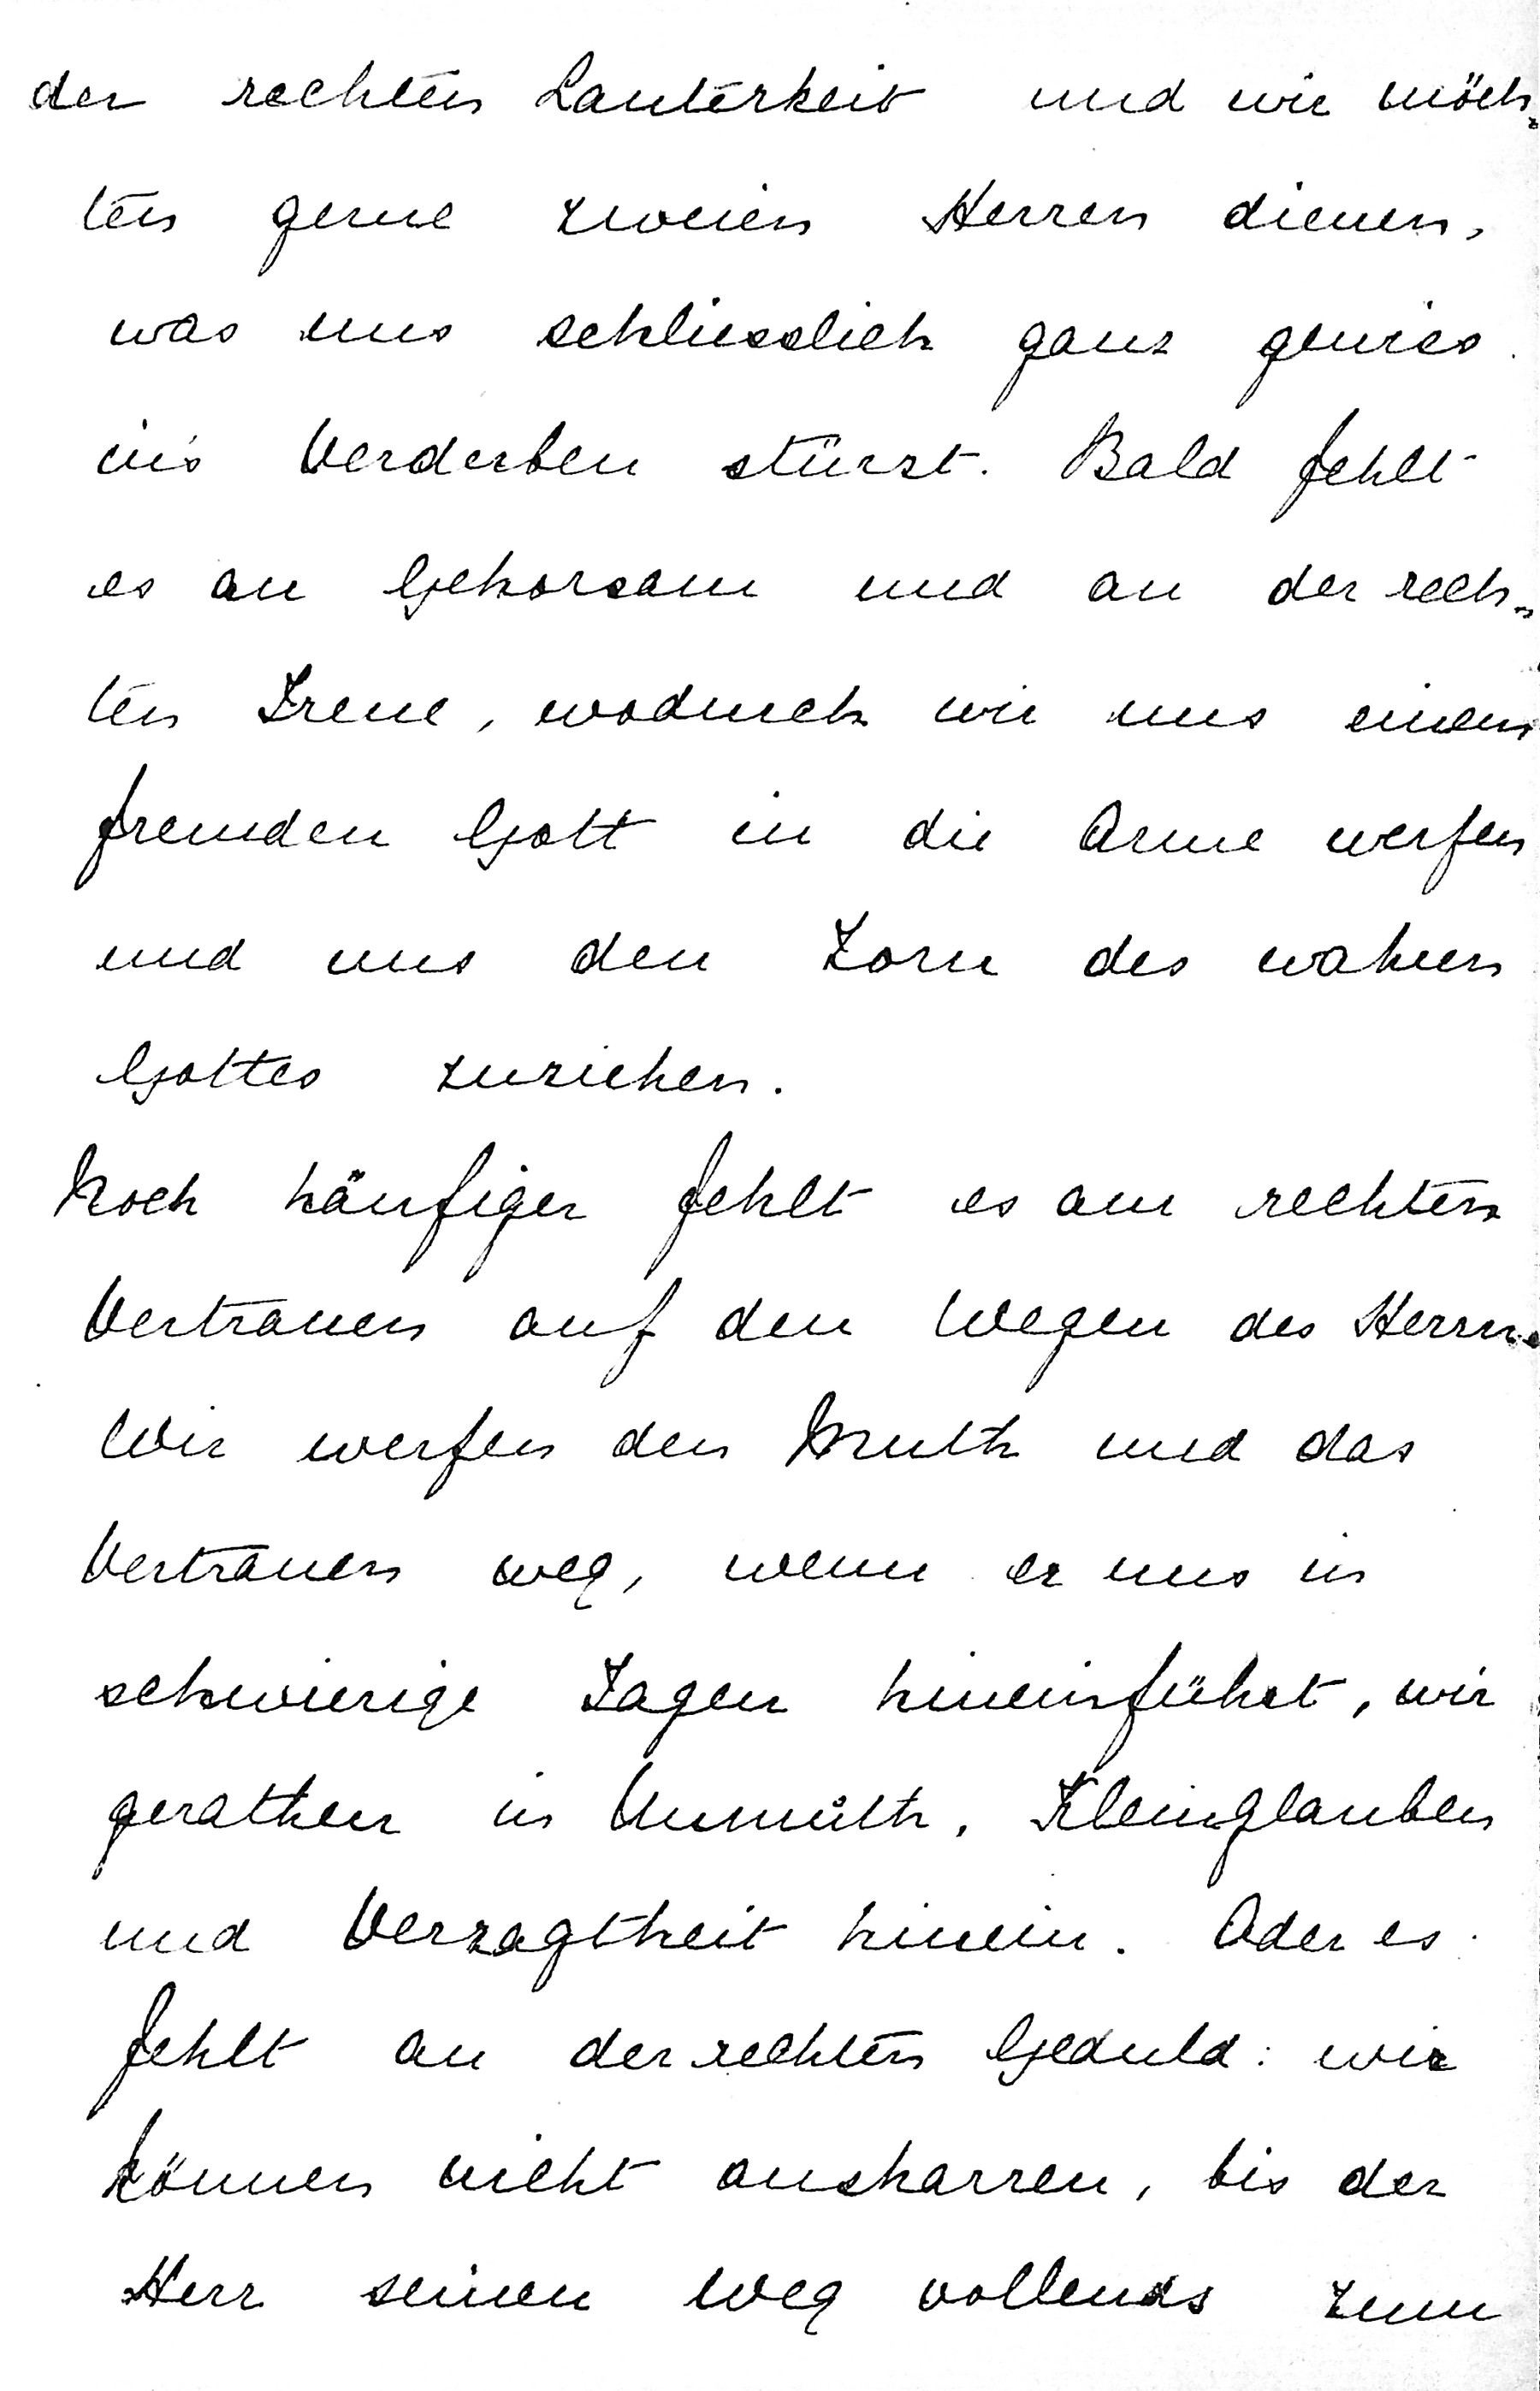 der rechten Lauterkeit und wir möch-
ten gerne zweien Herren dienen,
was uns schliesslich ganz gewiss
in's Verderben stürzt. Bald fehlt
es an Gehorsam und an der rech-
ten Treue, wodurch wir uns einem
fremden Gott in die Arme werfen
und uns den Zorn des wahren
Gottes zuziehen.
Noch häufiger fehlt es am rechten
Vertrauen auf den Wegen des Herrn.
Wir werfen den Muth und das
Vertrauen weg, wenn er uns in
schwierige Lagen hineinführt, wir
gerathen in Unmuth, Kleinglauben
und Verzagtheit hinein. Oder es
fehlt an der rechten Geduld: wir
können nicht ausharren, bis der
Herr seinen Weg vollends zum